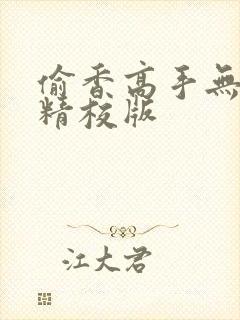 偷香高手無
精校版
江大君